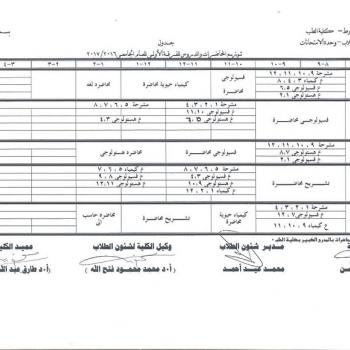 بسم
وط- كلية الطب
لاب- وحدة الامتحانات
جدول
توزيع المحاضرات والدروس للفرقة الأولى للعام الجامعى ٢٠١٧/٢٠١٦
٩-٨
١٠-٩
١١-١٠
١٢-١١
١-١٢
٢-١
٣-٢
٤-٣
مشرحة ٩، ١٠، ١١، ١٢
ع كيمياء ٣، ٤، ٨
ع فسيولوجى ٦،٥
ع هستولوجى ٢،١
فسيولوجى
محاضرة
كيمياء حيوية محاضرة
محاضرة لغة
فسيولوجى محاضرة
مشرحة ١، ٢، ٣، ٤
ع هستولوجى
مشرحة ٥، ٦، ٧، ٨
ع هستولوجى ٤،٣
مشرحة ٩، ١٠، ١١، ١٢
ع هستولوجى ٨،٧
ع فسيولوجى ٢،١
محاضرة هستولوجى
تشريح محاضرة
مشرحة ٥، ٦، ٧، ٨
ع فسيولوجى ٤،٣
ع هستولوجى ١٠،٩
ع كيمياء ١٢،١١
محاضرة هستولوجى
ع كيمياء ٥، ٦، ٧
ع فسيولوجى ٩، ٨
ع هستولوجى ١٢،١١
مشرحة ١، ٢، ٣، ٤
ع فسيولوجى ١٢،٧
ع كيمياء ٩، ١٠، ١١
كيمياء حيوية
محاضرة
تشريح محاضرة
محاضرة حاسب
آلى
مدير شئون الطلاب
وكيل الكلية لشئون الطلاب
عميد الكلية
محمد عيد أحمد
(أ.د محمد محمود فتح الله)
(أ.د طارق عبد الله